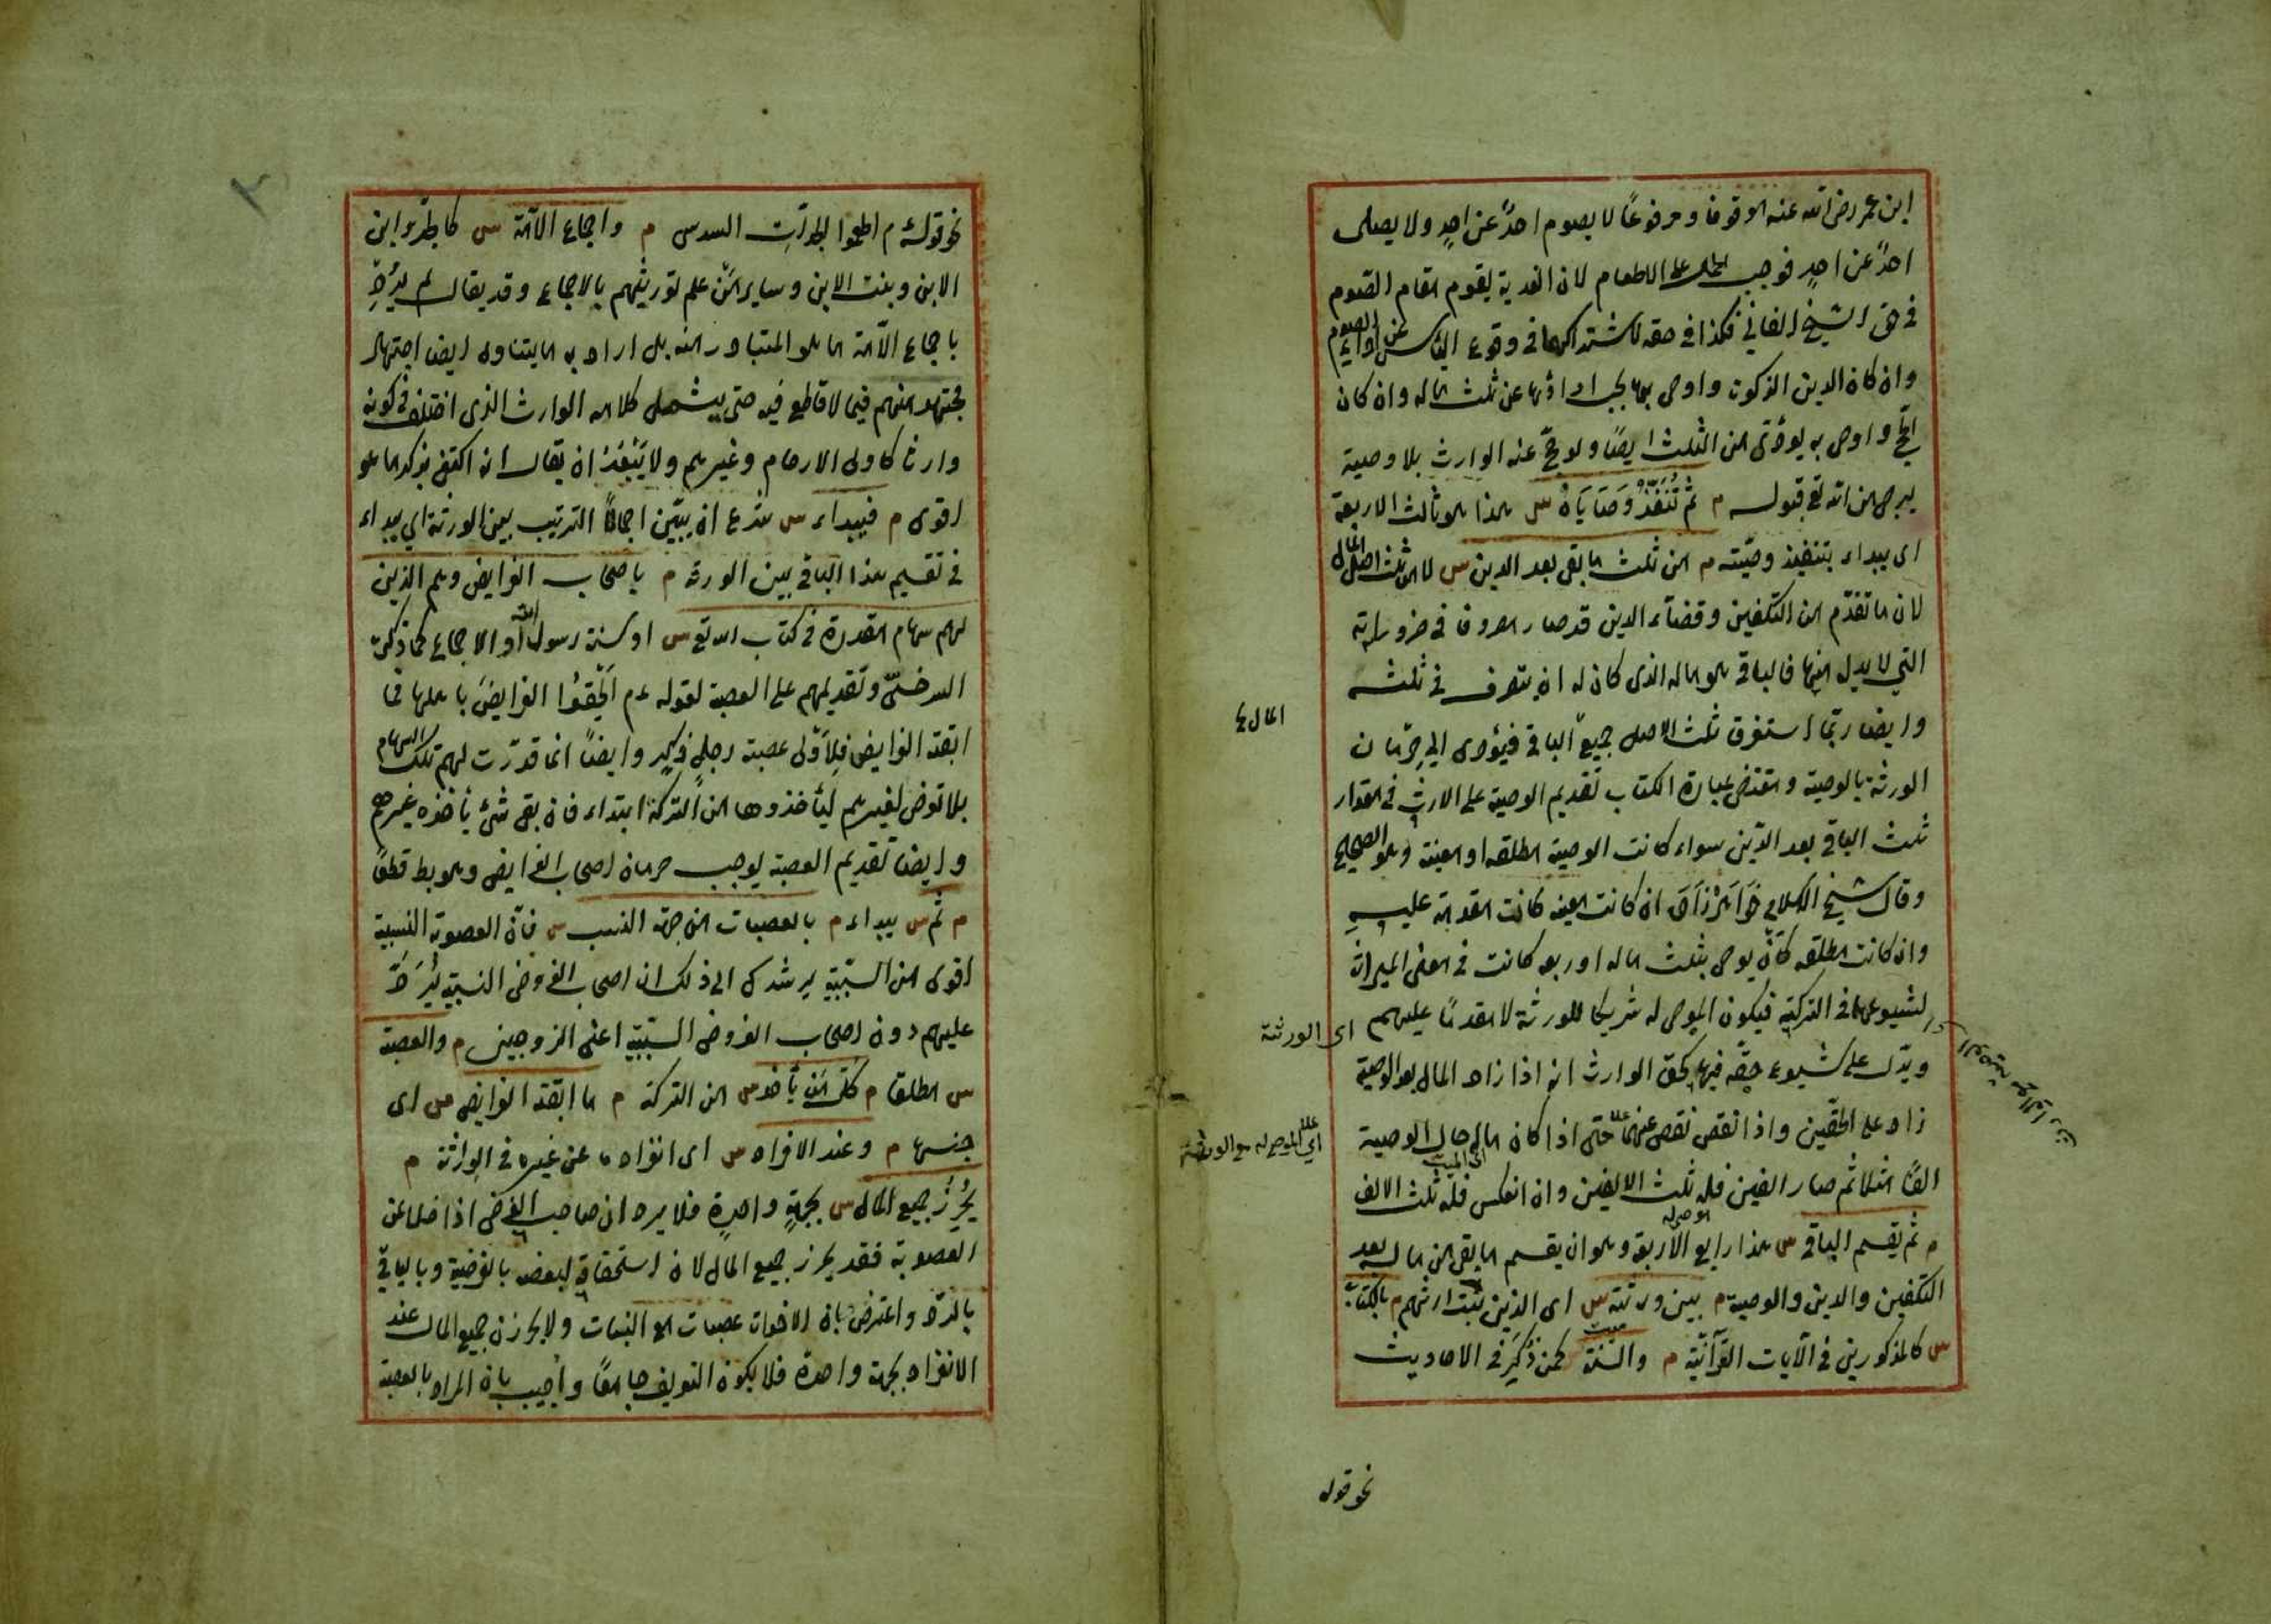 ابن عمر رضى الله عنه موقوفا ومرفوعًا لا يصوم احدٌ عن احدٍ ولا يصلى
احدٌ عن احدٍ فوجب الحمل على الاطعام لان الفدية يقوم مقام الصوم
فى حق الشيخ الفانى فكذا فى حقه لاشتراكهما فى وقوع الياس عن اداء الصوم
وان كان الدين الزكوة واوصى بها يجب اداؤها عن ثلث ماله وان كان
الحج واوصى به يؤدّى من الثلث ايضًا ولو حجّ عنه الوارث بلا وصية
يرجى من الله تع قبوله م ثم تُنَفَّذُ وَصَايَاهُ س هذا هو ثالث الاربعة
اى يبداء بتنفيذ وصيّته م من ثلث ما بقى بعد الدين س لا من ثلث اصل المال
لان ما تقدّم من التكفين وقضاء الدين قد صار مصروفا فى ضروراته
التى لا بد له منها فالباقى هو ماله الذى كان له ان يتصرف فى ثلثه
وايضا ربّما استغرق ثلث الاصل جميع الباقى فيؤدى الى حِرْمان
الورثة بالوصية ومقتضى عبارة الكتاب تقديم الوصية على الارث فى مقدار
ثلث الباقى بعد الدّين سواء كانت الوصية مطلقه او معينة وهو الصحيح
وقال شيخ الاسلام خَوَاهَرْزَادَه ان كانت معينه كانت مقدمة عليه
وان كانت مطلقه كَأَنْ يوصى بثلث ماله او ربعه كانت فى معنى الميراث
لشيوعها فى التركة فيكون الموصى له شريكا للورثة لا مقدمًا عليهم
ويدّل على شيوع حقّه فيها كحق الوارث انه اذا زاد المال بعد الوصية
زاد على الحقّين واذا نقص نقص عنهما حتى اذا كان ماله حال الوصية
الفًا مثلا ثم صار الفين فله ثلث الالفين وان انعكس فله ثلث الالف
م ثم يقسم الباقى س هذا رابع الاربعة وهو ان يقسم ما بقى من ماله بعد
التكفين والدين والوصية م بين ورثته س اى الذين ثبت ارثهم م بالكتاب
س كالمذكورين فى الآيات القرآنيّة م والسنّة س كمن ذُكِرَ فى الاحاديث
المال
اى الورثة
اى الموصى له مع الورثة
اى الميت
الموصى له
نحو قوله
نحو قوله ۴م اطعموا الجدّات السدس م واجماع الامّة س كالجدّ وابن
الابن وبنت الابن وسائر مَنْ علم توريثهم بالاجماع وقد يقال لم يُرِدْ
باجماع الامّة ما هو المتبادر منه بل اراد به ما يتناول ايضا اجتهاد
مجتهد منهم فيما لا قاطع فيه حتى يشمل كلامه الوارث الذى اختلف فى كونه
وارثا كاولى الارحام وغيرهم ولا يَبْعُدُ ان يقال انه اكتفى بذكر ما هو
اقوى م فيبداء س شرع ان يبيّن اجمالًا الترتيب بين الورثة اى يبداء
فى تقسيم هذا الباقى بين الورثة م باصحاب الفرائض وهم الذين
لهم سهام مقدرة فى كتاب الله تع س او سنة رسول الله او الاجماع كما ذكره
السرخسىّ وتقديمهم على العصبة لقوله ۴م اَلْحِقُوْا الفرايضَ باهلها فما
ابقته الفرايض فِلِأَوْلى عصبة رجل ذكر وايضًا انما قدّرت لهم تلك السهام
بلا تعرض لغيرهم ليأخذوها من التركة ابتداء فان بقى شئ يأخذه غيرهم
وايضا تقديم العصبة يوجب حرمان اصحاب الفرايض وهو بط قطعًا
م ثم س يبداء م بالعصبات من جهة النسب س فانّ العصوبة النسبية
اقوى من السّببيّة يرشدك الى ذلك ان اصحاب الفروض النسبيّة يُرَدُّ
عليهم دون اصحاب الفروض السّببيّة اعنى الزوجين م والعصبة
س مطلقا م كلّ مَن يأخذ س من التركة م ما ابقته الفرايض س اى
جنسها م وعند الافراد س اى انفراده عن غيره فى الوراثة م
يُحْرِزُ جميع المال س بجهةٍ واحدةٍ فلا يرد ان صاحب الفرض اذا خلا عن
العصوبة فقد يحرز جميع المال لان استحقاقه لبعضه بالفرضية وبالباقى
بالردّ واعترض بان الاخوات عصبات مع البنات ولا يحرزن جميع المال عند
الانفراد بجهة واحدة فلا يكون التعريف جامعًا واُجيب بان المراد بالعصبة